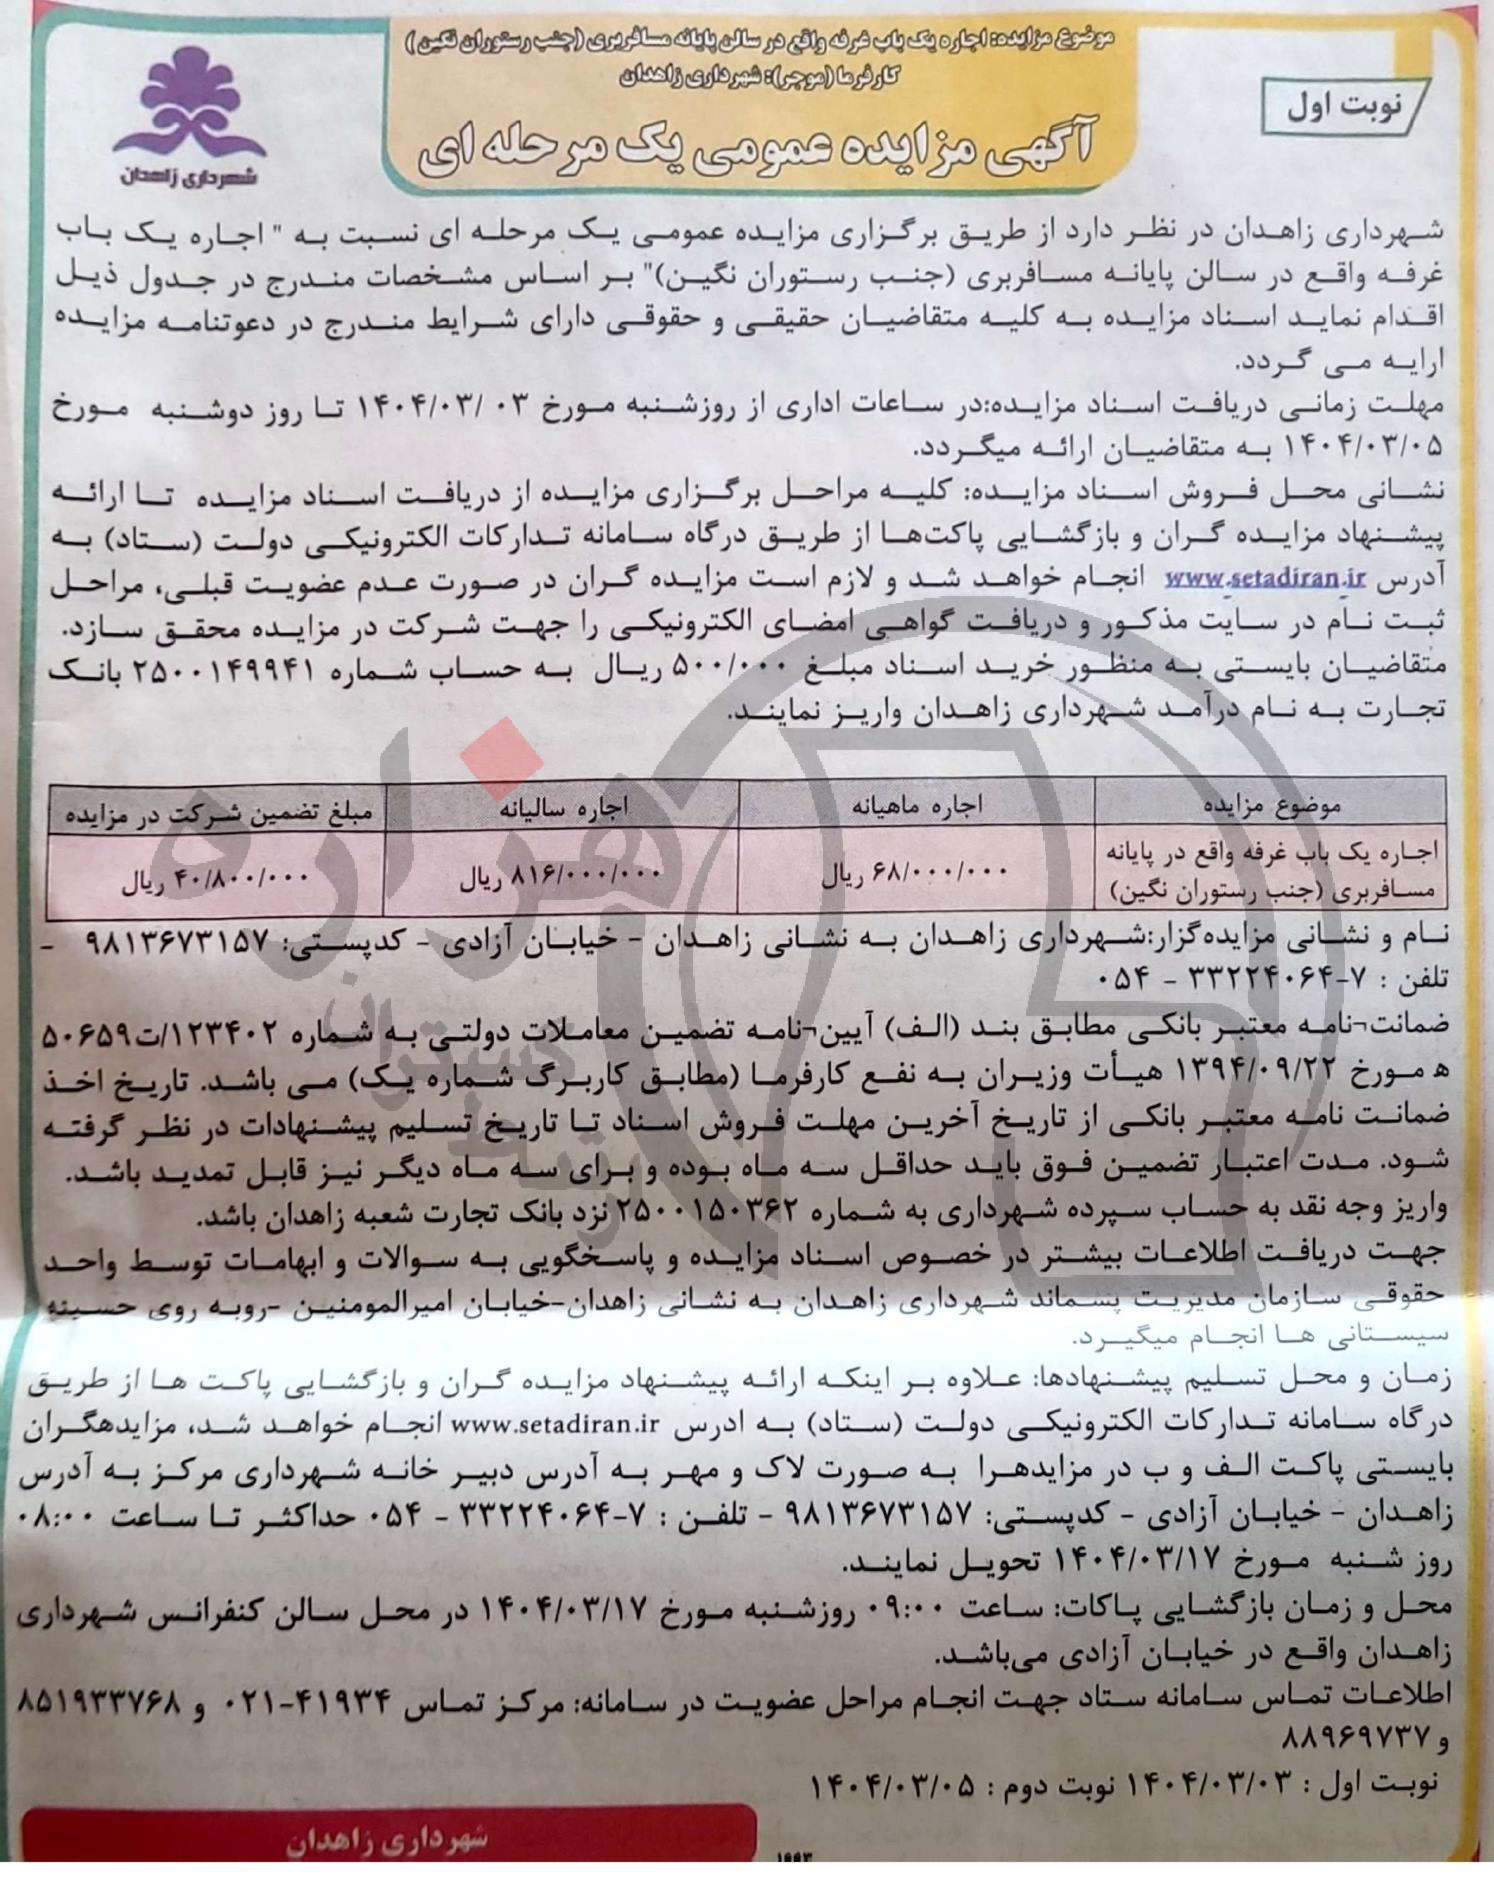 موضوع مزایده: اجاره یک باب غرفه واقع در سالن پایانه مسافربری (جنب رستوران نگین)
کارفرما (موجر): شهرداری زاهدان
نوبت اول
آگهی مزایده عمومی یک مرحله ای
شهرداری زاهدان
شهرداری زاهدان در نظر دارد از طریق برگزاری مزایده عمومی یک مرحله ای نسبت به " اجاره یک باب
غرفه واقع در سالن پایانه مسافربری (جنب رستوران نگین)" بر اساس مشخصات مندرج در جدول ذیل
اقدام نماید اسناد مزایده به کلیه متقاضیان حقیقی و حقوقی دارای شرایط مندرج در دعوتنامه مزایده
ارایه می گردد.
مهلت زمانی دریافت اسناد مزایده:در ساعات اداری از روزشنبه مورخ ۰۳ /۱۴۰۴/۰۳ تا روز دوشنبه مورخ
۱۴۰۴/۰۳/۰۵ به متقاضیان ارائه میگردد.
نشانی محل فروش اسناد مزایده: کلیه مراحل برگزاری مزایده از دریافت اسناد مزایده تا ارائه
پیشنهاد مزایده گران و بازگشایی پاکت‌ها از طریق درگاه سامانه تدارکات الکترونیکی دولت (ستاد) به
آدرس www.setadiran.ir انجام خواهد شد و لازم است مزایده گران در صورت عدم عضویت قبلی، مراحل
ثبت نام در سایت مذکور و دریافت گواهی امضای الکترونیکی را جهت شرکت در مزایده محقق سازد.
متقاضیان بایستی به منظور خرید اسناد مبلغ ۵۰۰/۰۰۰ ریال به حساب شماره ۲۵۰۰۱۴۹۹۴۱ بانک
تجارت به نام درآمد شهرداری زاهدان واریز نمایند.
موضوع مزایده اجاره ماهیانه اجاره سالیانه مبلغ تضمین شرکت در مزایده
اجاره یک باب غرفه واقع در پایانه
مسافربری (جنب رستوران نگین) ۶۸/۰۰۰/۰۰۰ ریال ۸۱۶/۰۰۰/۰۰۰ ریال ۴۰/۸۰۰/۰۰۰ ریال
نام و نشانی مزایده‌گزار:شهرداری زاهدان به نشانی زاهدان - خیابان آزادی - کدپستی: ۹۸۱۳۶۷۳۱۵۷ -
تلفن : ۷-۳۳۲۲۴۰۶۴ - ۰۵۴
ضمانت¬نامه معتبر بانکی مطابق بند (الف) آیین¬نامه تضمین معاملات دولتی به شماره ۱۲۳۴۰۲/ت۵۰۶۵۹
ه مورخ ۱۳۹۴/۰۹/۲۲ هیأت وزیران به نفع کارفرما (مطابق کاربرگ شماره یک) می باشد. تاریخ اخذ
ضمانت نامه معتبر بانکی از تاریخ آخرین مهلت فروش اسناد تا تاریخ تسلیم پیشنهادات در نظر گرفته
شود. مدت اعتبار تضمین فوق باید حداقل سه ماه بوده و برای سه ماه دیگر نیز قابل تمدید باشد.
واریز وجه نقد به حساب سپرده شهرداری به شماره ۲۵۰۰۱۵۰۳۶۲ نزد بانک تجارت شعبه زاهدان باشد.
جهت دریافت اطلاعات بیشتر در خصوص اسناد مزایده و پاسخگویی به سوالات و ابهامات توسط واحد
حقوقی سازمان مدیریت پسماند شهرداری زاهدان به نشانی زاهدان-خیابان امیرالمومنین -روبه روی حسینیه
سیستانی ها انجام میگیرد.
زمان و محل تسلیم پیشنهادها: علاوه بر اینکه ارائه پیشنهاد مزایده گران و بازگشایی پاکت ها از طریق
درگاه سامانه تدارکات الکترونیکی دولت (ستاد) به ادرس www.setadiran.ir انجام خواهد شد، مزایدهگران
بایستی پاکت الف و ب در مزایدهرا به صورت لاک و مهر به آدرس دبیر خانه شهرداری مرکز به آدرس
زاهدان - خیابان آزادی - کدپستی: ۹۸۱۳۶۷۳۱۵۷ - تلفن : ۷-۳۳۲۲۴۰۶۴ - ۰۵۴ حداکثر تا ساعت ۰۸:۰۰
روز شنبه مورخ ۱۴۰۴/۰۳/۱۷ تحویل نمایند.
محل و زمان بازگشایی پاکات: ساعت ۰۹:۰۰ روزشنبه مورخ ۱۴۰۴/۰۳/۱۷ در محل سالن کنفرانس شهرداری
زاهدان واقع در خیابان آزادی می‌باشد.
اطلاعات تماس سامانه ستاد جهت انجام مراحل عضویت در سامانه: مرکز تماس ۴۱۹۳۴-۰۲۱ و ۸۵۱۹۳۳۷۶۸
و ۸۸۹۶۹۷۳۷
نوبت اول : ۱۴۰۴/۰۳/۰۳ نوبت دوم : ۱۴۰۴/۰۳/۰۵
شهرداری زاهدان
هزاره